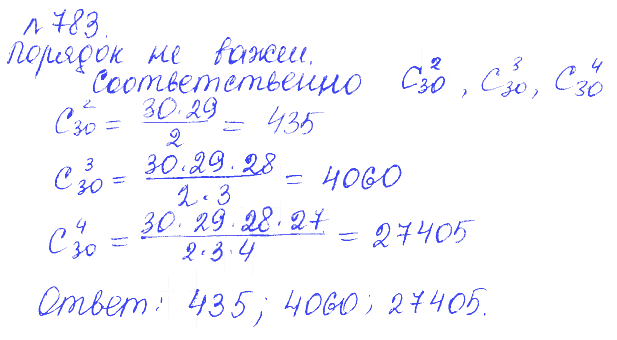 №783.
Порядок не важен.
Соответственно C₃₀², C₃₀³, C₃₀⁴
C₃₀² = 30·29/2 = 435
C₃₀³ = 30·29·28/2·3 = 4060
C₃₀⁴ = 30·29·28·27/2·3·4 = 27405
Ответ: 435; 4060; 27405.